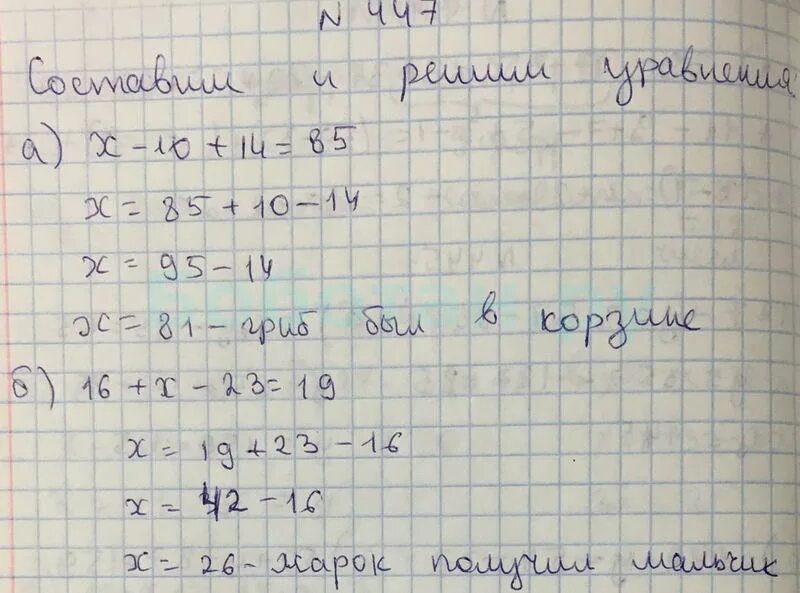 N 447
Составим и решим уравнения
а) x - 10 + 14 = 85
x = 85 + 10 - 14
x = 95 - 14
x = 81 - гриб был в корзине
б) 16 + x - 23 = 19
x = 19 + 23 - 16
x = 42 - 16
x = 26 - марок получил мальчик